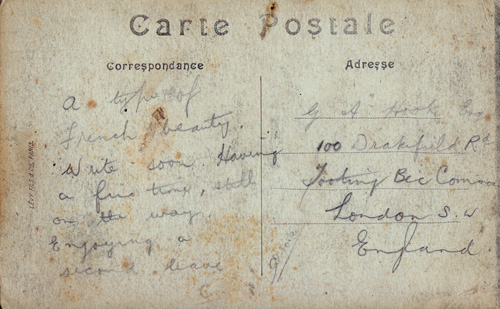 Carte Postale
Correspondance
Adresse
a type of
French beauty.
Write soon. Having
a fine time, still
on the way.
Enjoying a
second leave
G A Hook Esq
100 Drakefield Rd
Tooting Bec Common
London S.W
England.